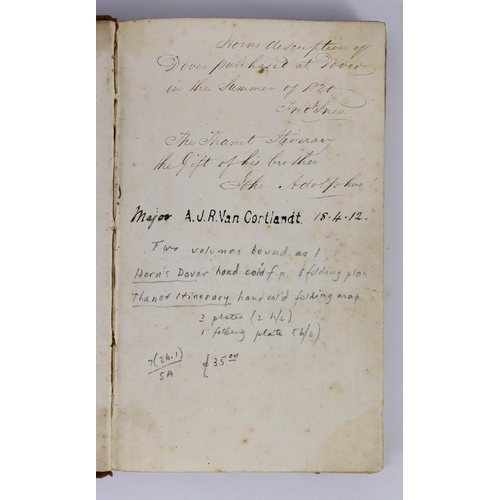 Horns descriptive of
Dover purchased at Dover
in the Summer of 1820
The Thanet Itinerary
the Gift of his brother
John Adolphus
Major A.J.R. Van Cortlandt. 18.4.12.
Two volumes bound as 1
Horn's Dover hand col'd f.p. & folding plan
Thanet Itinerary hand col'd folding map
3 plates (2 h/c)
1 folding plate (h/c)
7(26.1)
5A
£35.00